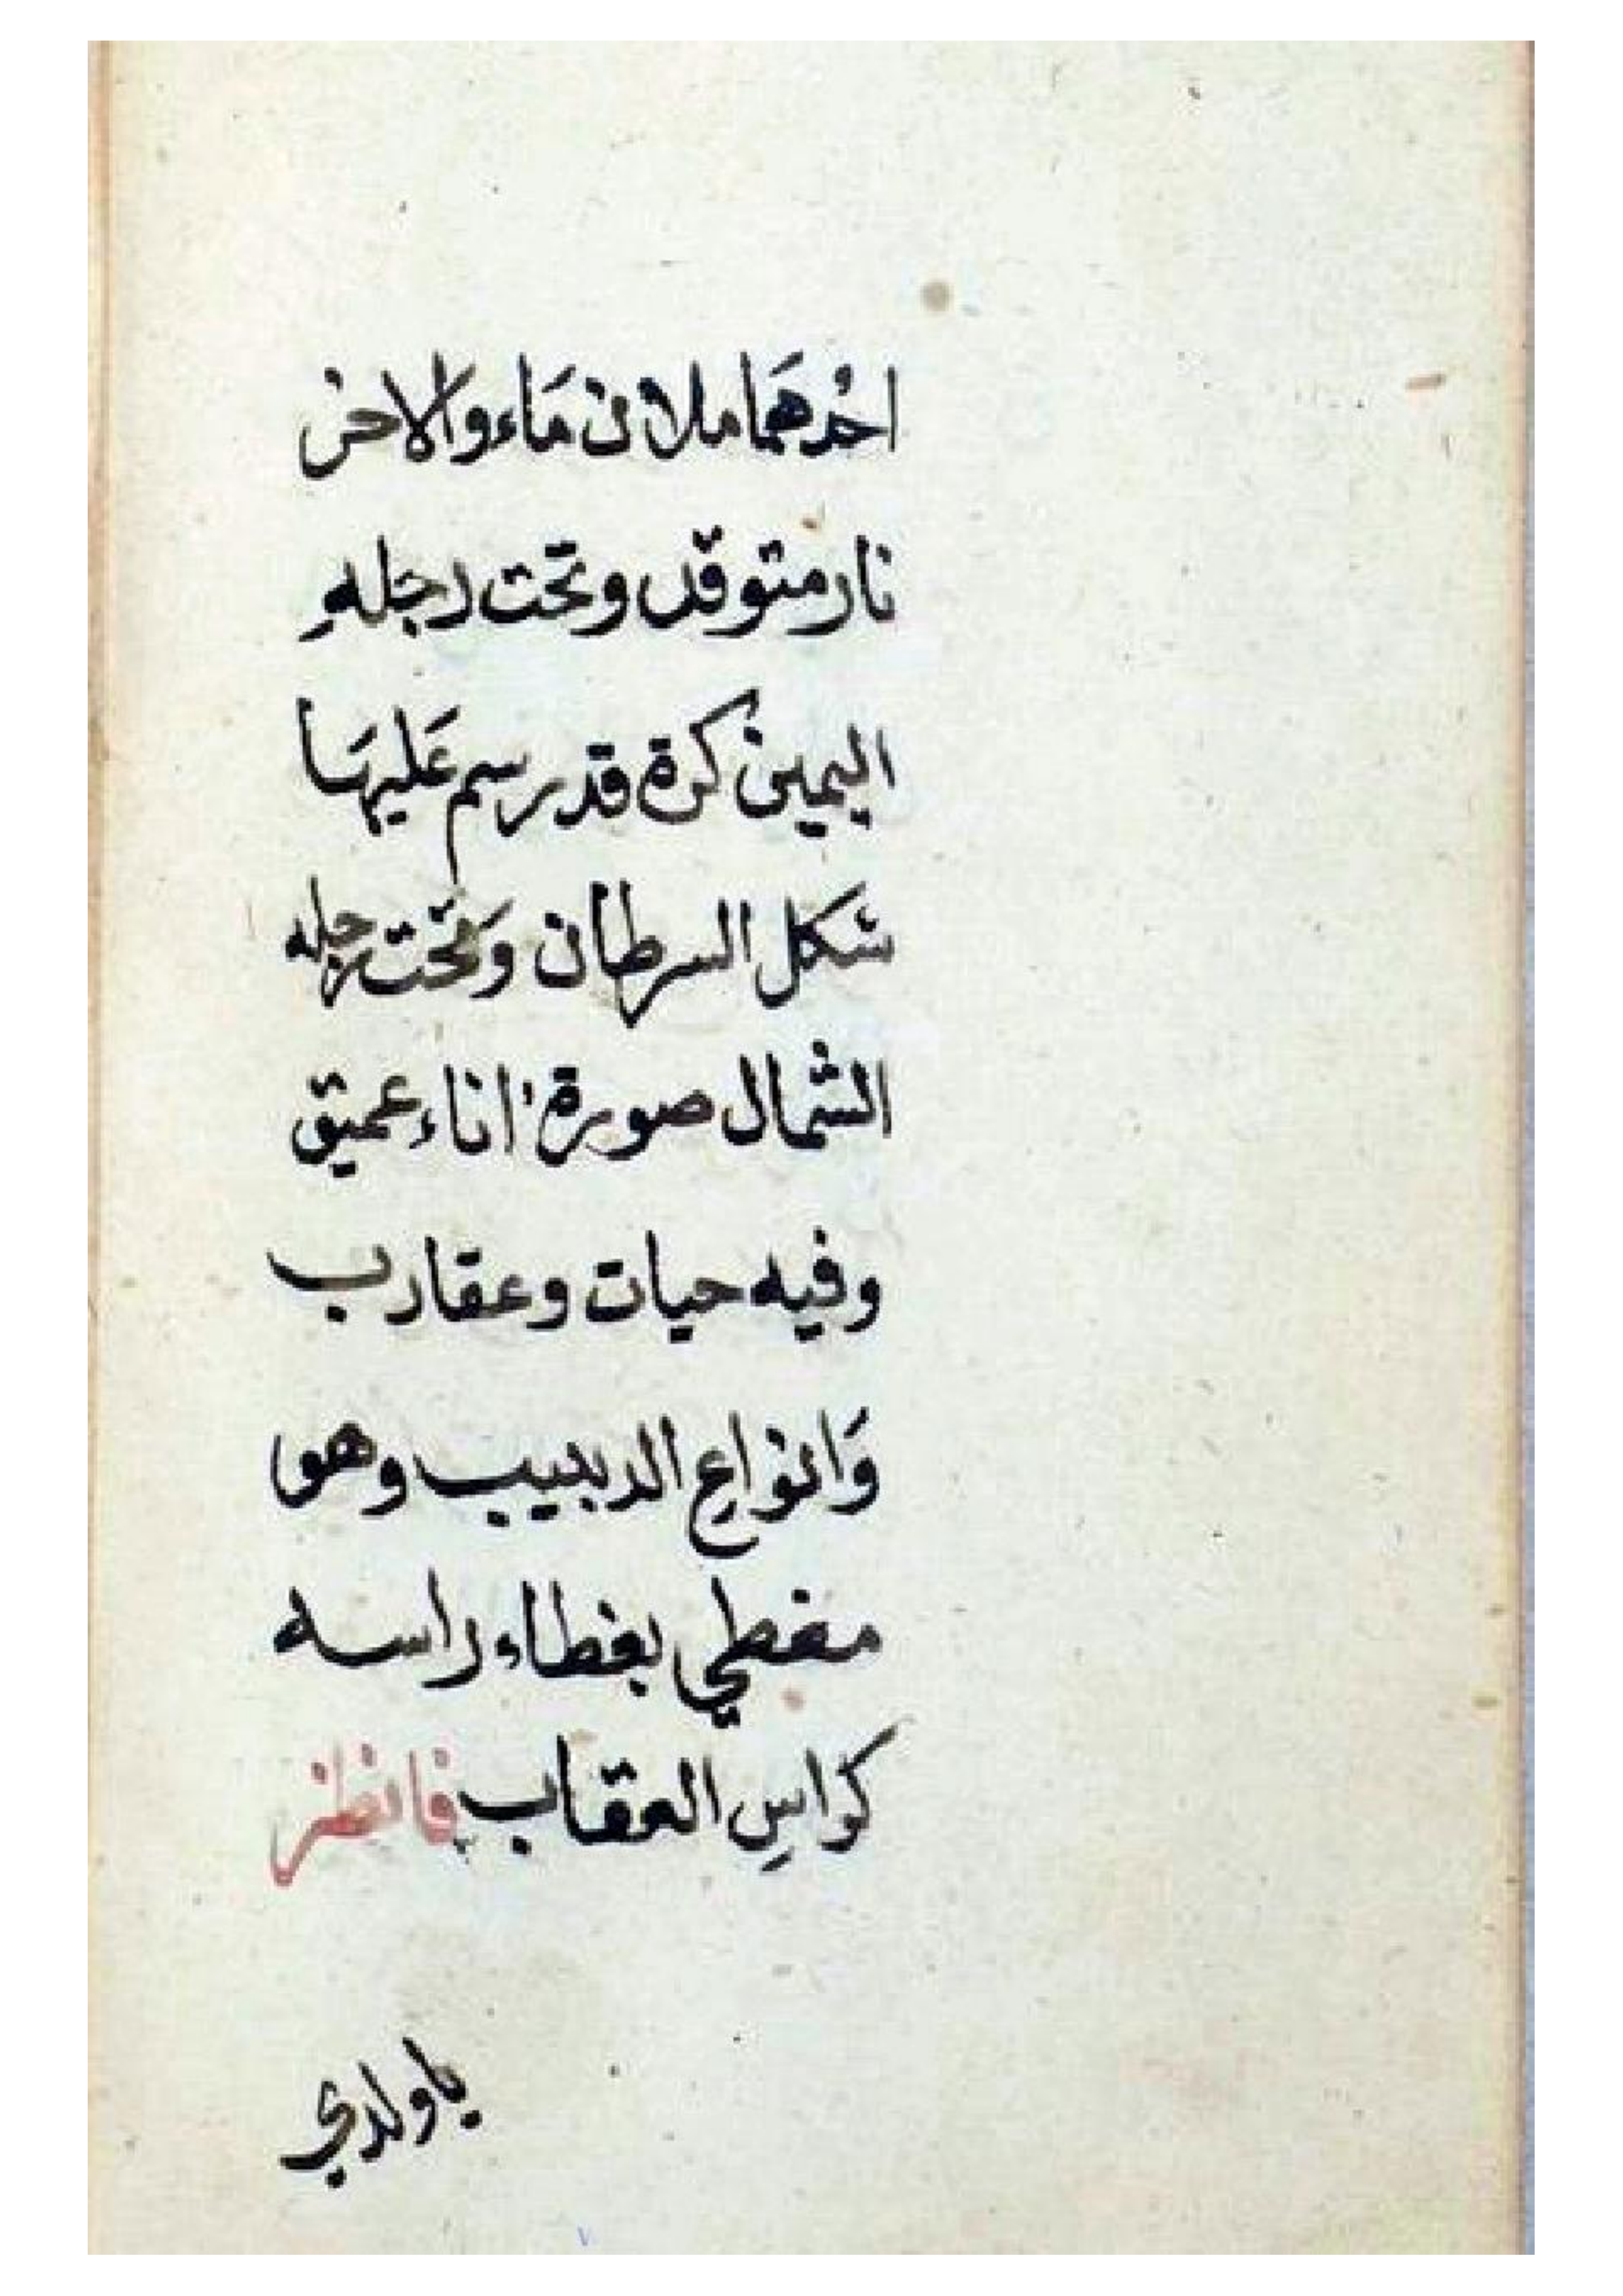 احدهَما ملان مَاء والاخر
نار متوقد وتحت رجلهِ
اليمين كرة قد رسم عَليهَا
شكل السرطان وَتحت رجله
الشمال صورة اناء عميق
وفيه حيات وعقارب
وَانواعِ الدبيب وهو
مغطي بغطاء راسه
كراسِ العقاب فانظر
ياولدي